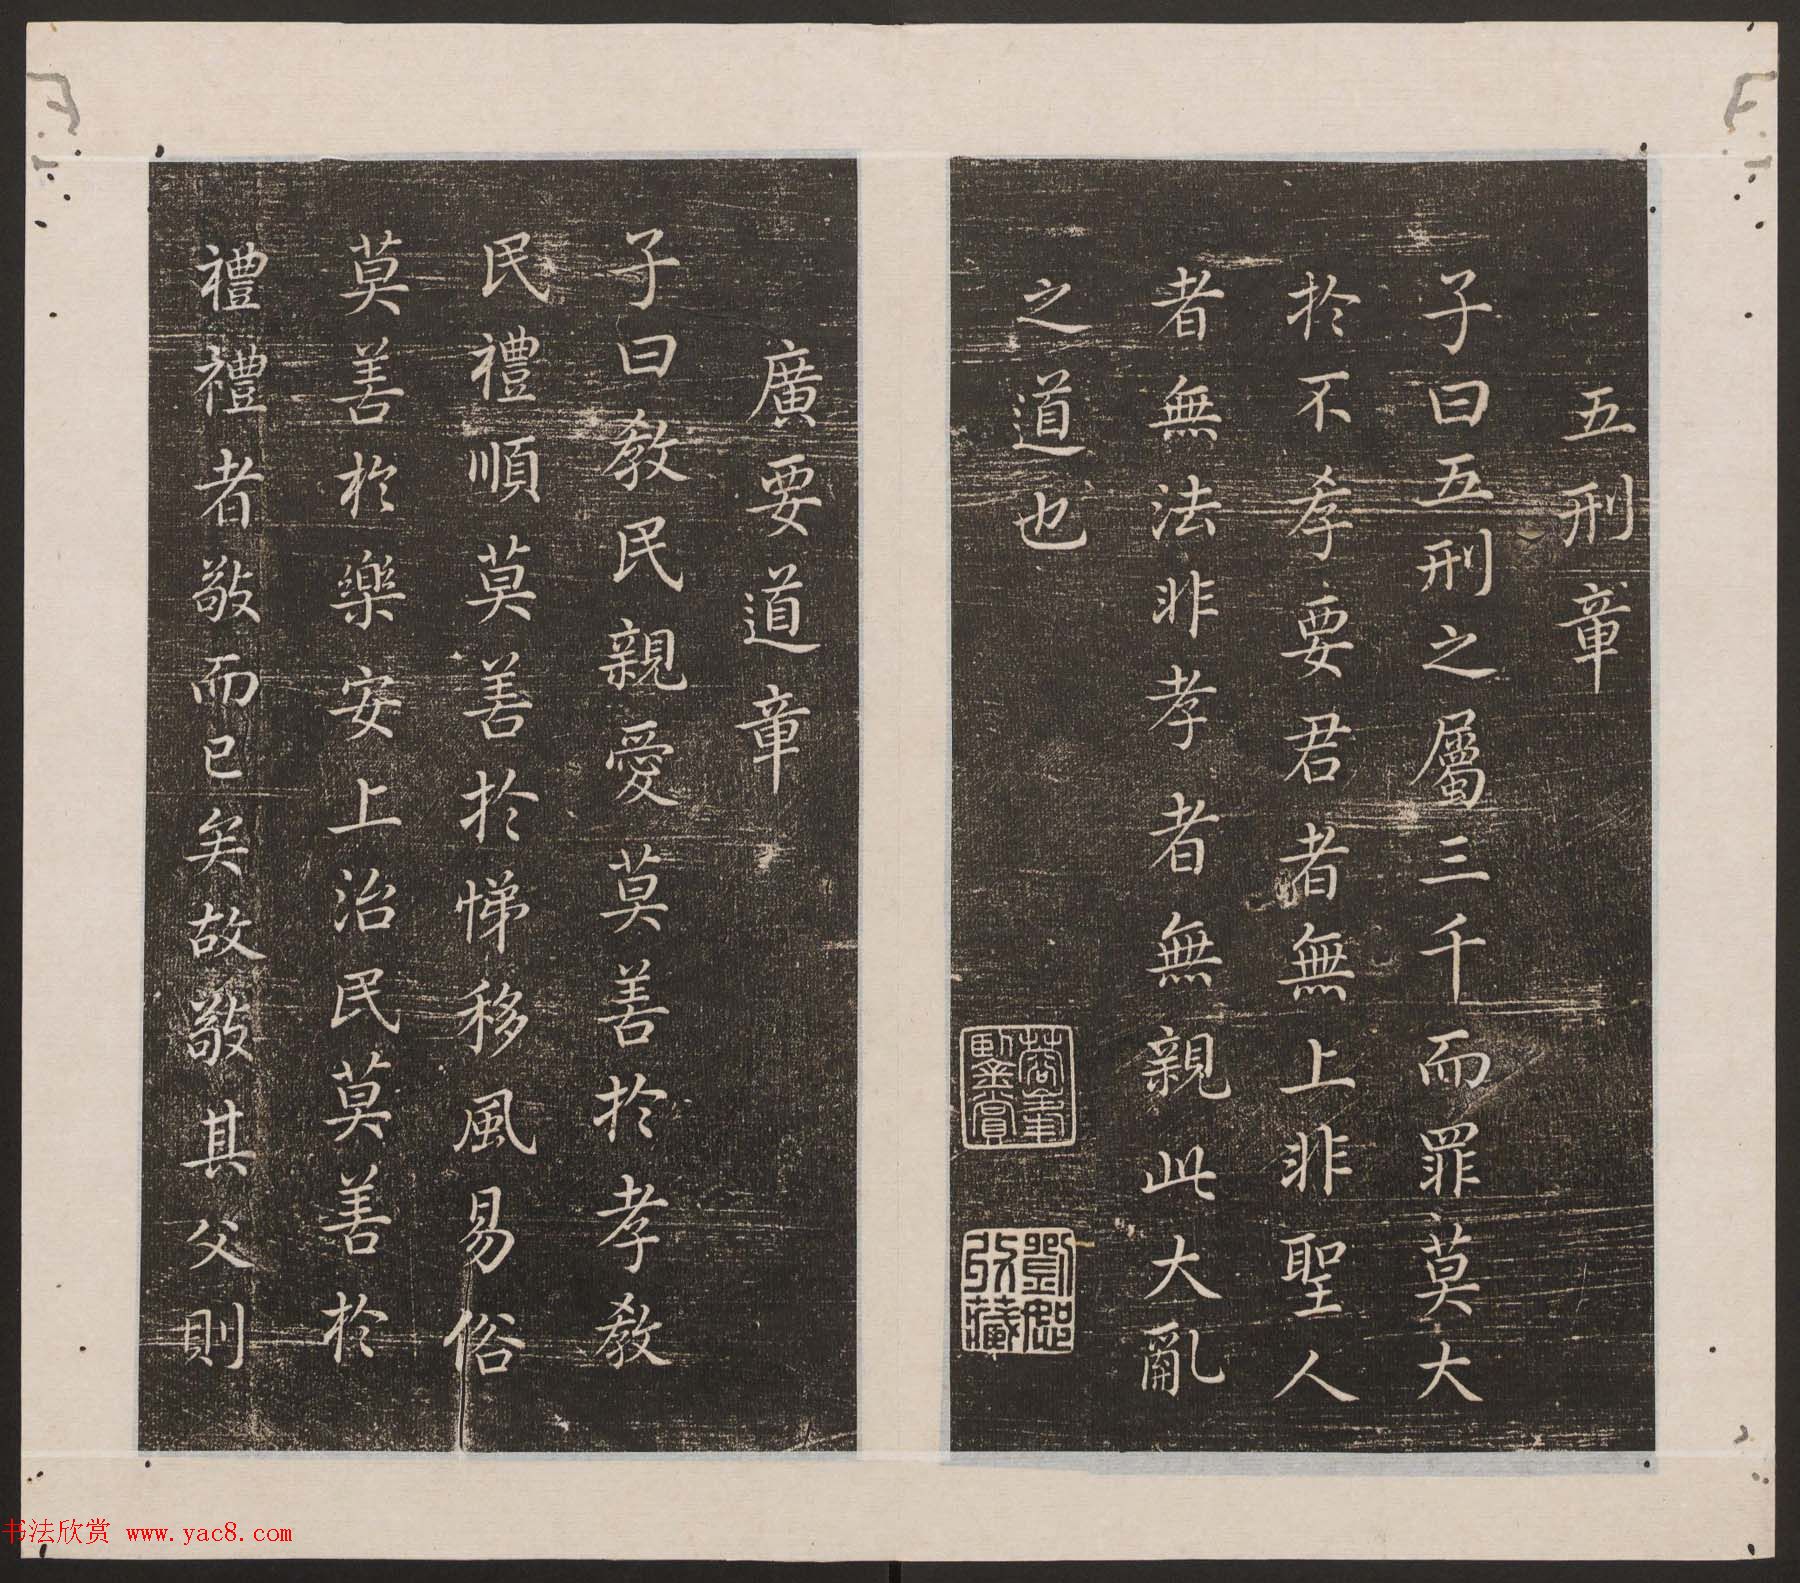 五刑章
子曰五刑之屬三千而罪莫大
於不孝要君者無上非聖人
者無法非孝者無親此大亂
之道也
廣要道章
子曰教民親愛莫善於孝教
民禮順莫善於悌移風易俗
莫善於樂安上治民莫善於
禮禮者敬而已矣故敬其父則
书法欣赏 www.yac8.com